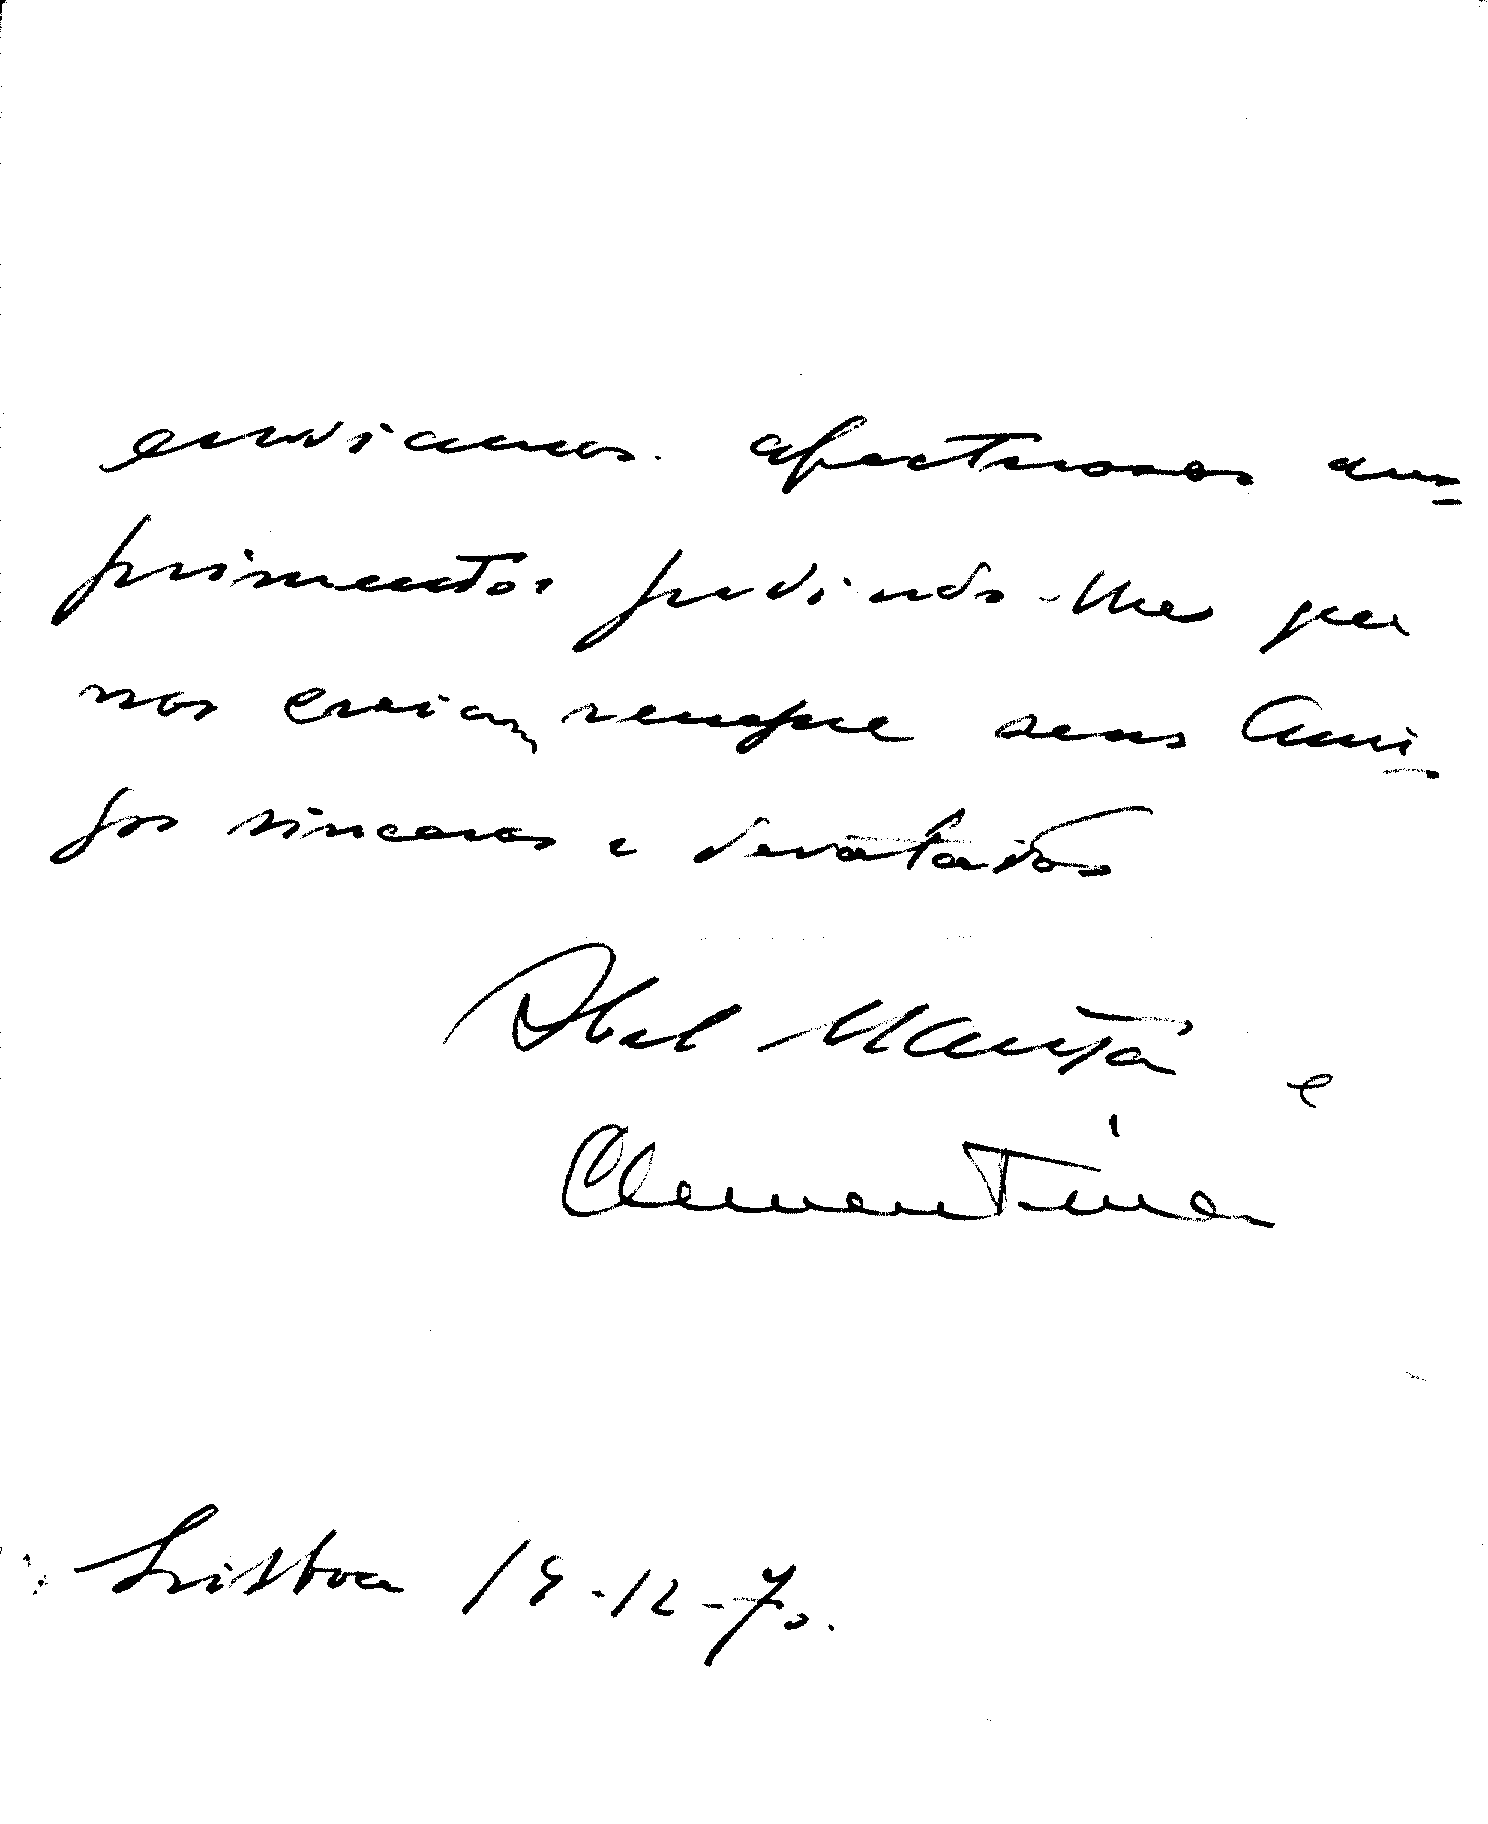 enviamos afectuosos cum-
primentos pedindo-lhe que
nos creiam sempre seus Ami-
gos sinceros e devotados
Abel Manta e
Clementina
Lisboa 19-12-70.